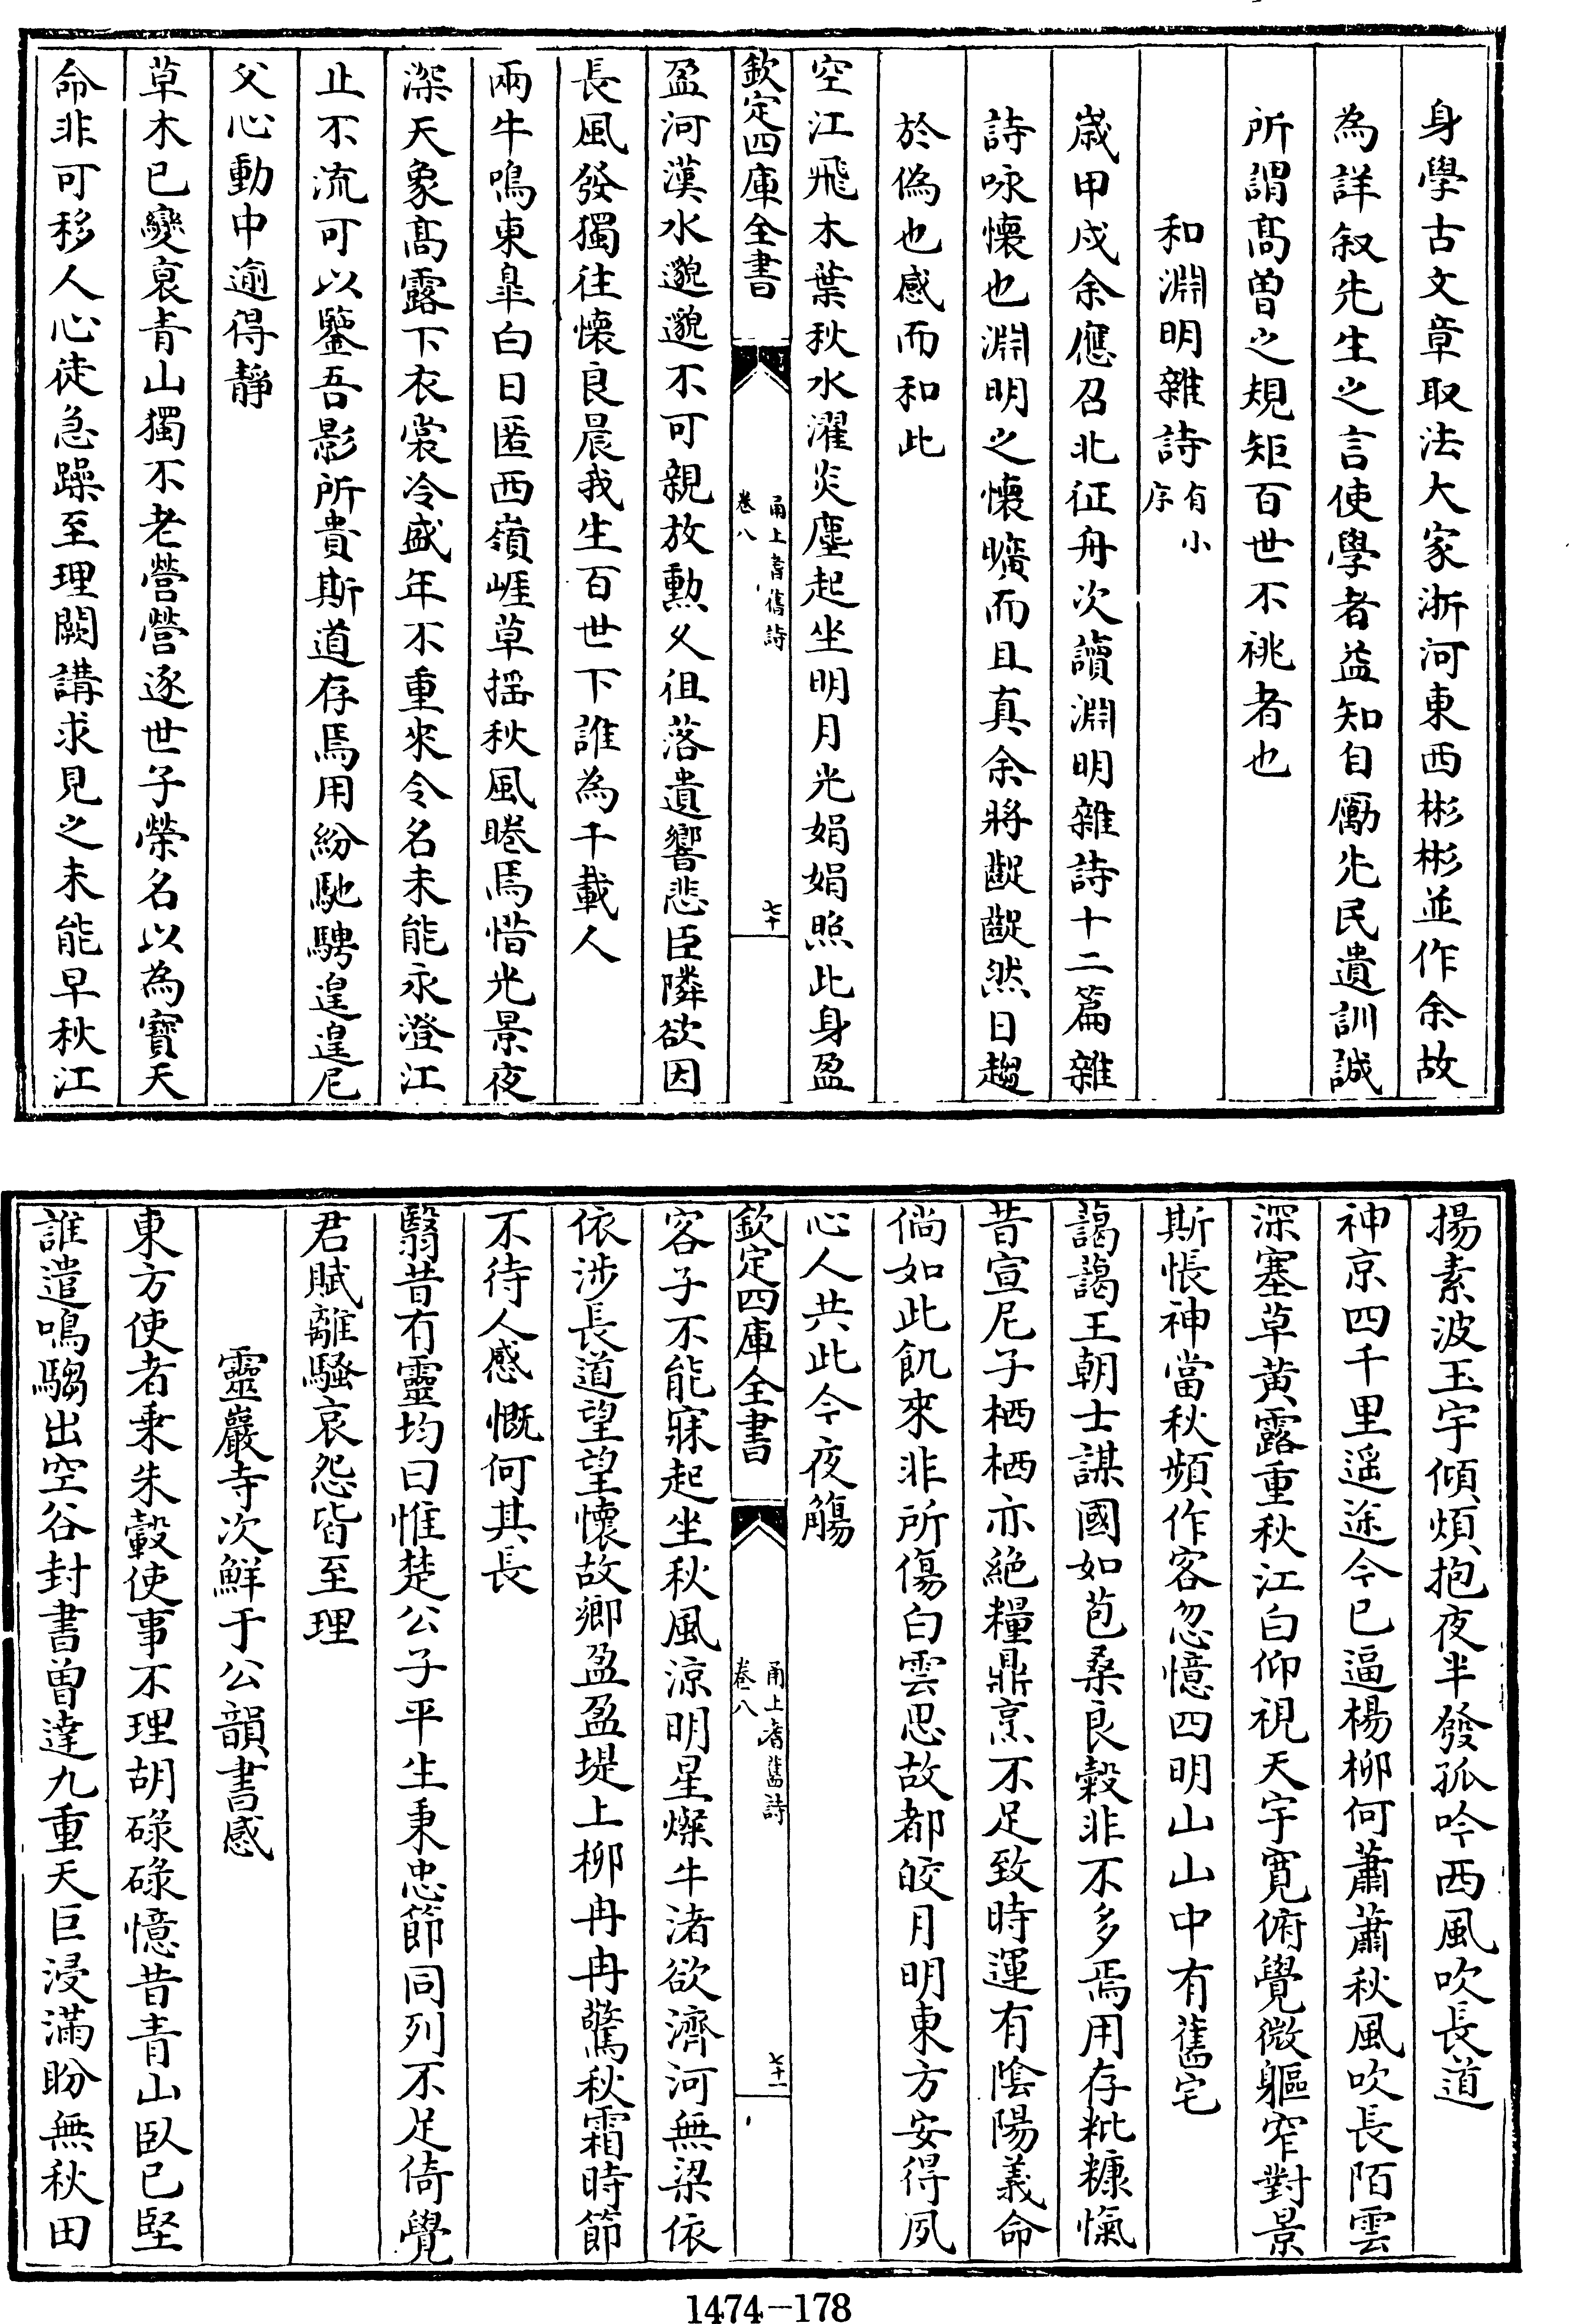 身學古文章取法大家浙河東西彬彬並作余故
為詳叙先生之言使學者益知自勵先民遺訓誠
所謂髙曽之規矩百世不祧者也
和淵明雜詩有小序
歳甲戌余應召北征舟次讀淵明雜詩十二篇雜
詩咏懐也淵明之懐曠而且真余將齪齪然日趨
於偽也感而和此
空江飛木葉秋水濯炎塵起坐明月光娟娟照此身盈
欽定四庫全書
甬上耆舊詩
卷八
七十
盈河漢水邈邈不可親放勲乆徂落遺響悲臣隣欲因
長風發獨往懐良晨我生百世下誰為千載人
兩牛鳴東臯白日匿西嶺崕草揺秋風晻焉惜光景夜
深天象髙露下衣裳冷盛年不重來令名未能永澄江
止不流可以鑒吾影所貴斯道存焉用紛馳騁遑遑尼
父心動中逾得靜
草木已變衰青山獨不老營營逐世子榮名以為寳天
命非可移人心徒急躁至理闕講求見之未能早秋江
揚素波玉宇傾煩抱夜半發孤吟西風吹長道
神京四千里遥途今已逼楊柳何蕭蕭秋風吹長陌雲
深塞草黄露重秋江白仰視天宇寛俯覺微軀窄對景
斯悵神當秋頻作客忽憶四明山山中有舊宅
藹藹王朝士謀國如苞桑良榖非不多焉用存粃糠愾
昔宣尼子栖栖亦絶糧鼎烹不足致時運有隂陽義命
倘如此飢來非所傷白雲思故都皎月明東方安得夙
心人共此今夜觴
欽定四庫全書
甬上耆舊詩
卷八
七十一
客子不能寐起坐秋風涼明星燦牛渚欲濟河無梁依
依涉長道望望懐故鄉盈盈堤上柳冉冉驚秋霜時節
不待人感慨何其長
翳昔有靈均曰惟楚公子平生秉忠節同列不足倚覺
君賦離騷哀怨皆至理
靈巖寺次鮮于公韻書感
東方使者乗朱轂使事不理胡碌碌憶昔青山臥已堅
誰遣鳴騶出空谷封書曽達九重天巨浸滿盼無秋田
1474-178